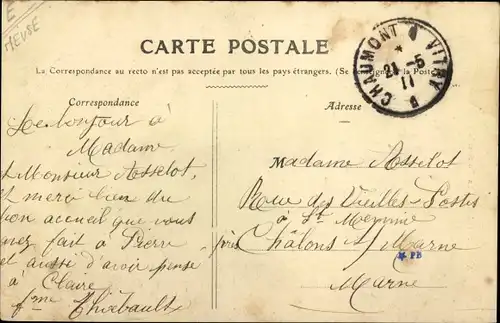 E
MEUSE
CARTE POSTALE
La Correspondance au recto n'est pas acceptée par tous les pays étrangers. (Se renseigner à la Poste)
CHAUMONT A VITRY
21 -5
11
Correspondance
Adresse
Le bonjour à
Madame
et Monsieur Asselot,
et merci bien du
bon accueil que vous
avez fait à Pierre
et aussi d'avoir pensé
à Claire
Thiébault
Madame Asselot
Rue des Vieilles-Postes
à St Memmie
près Châlons s/ Marne
PB
Marne